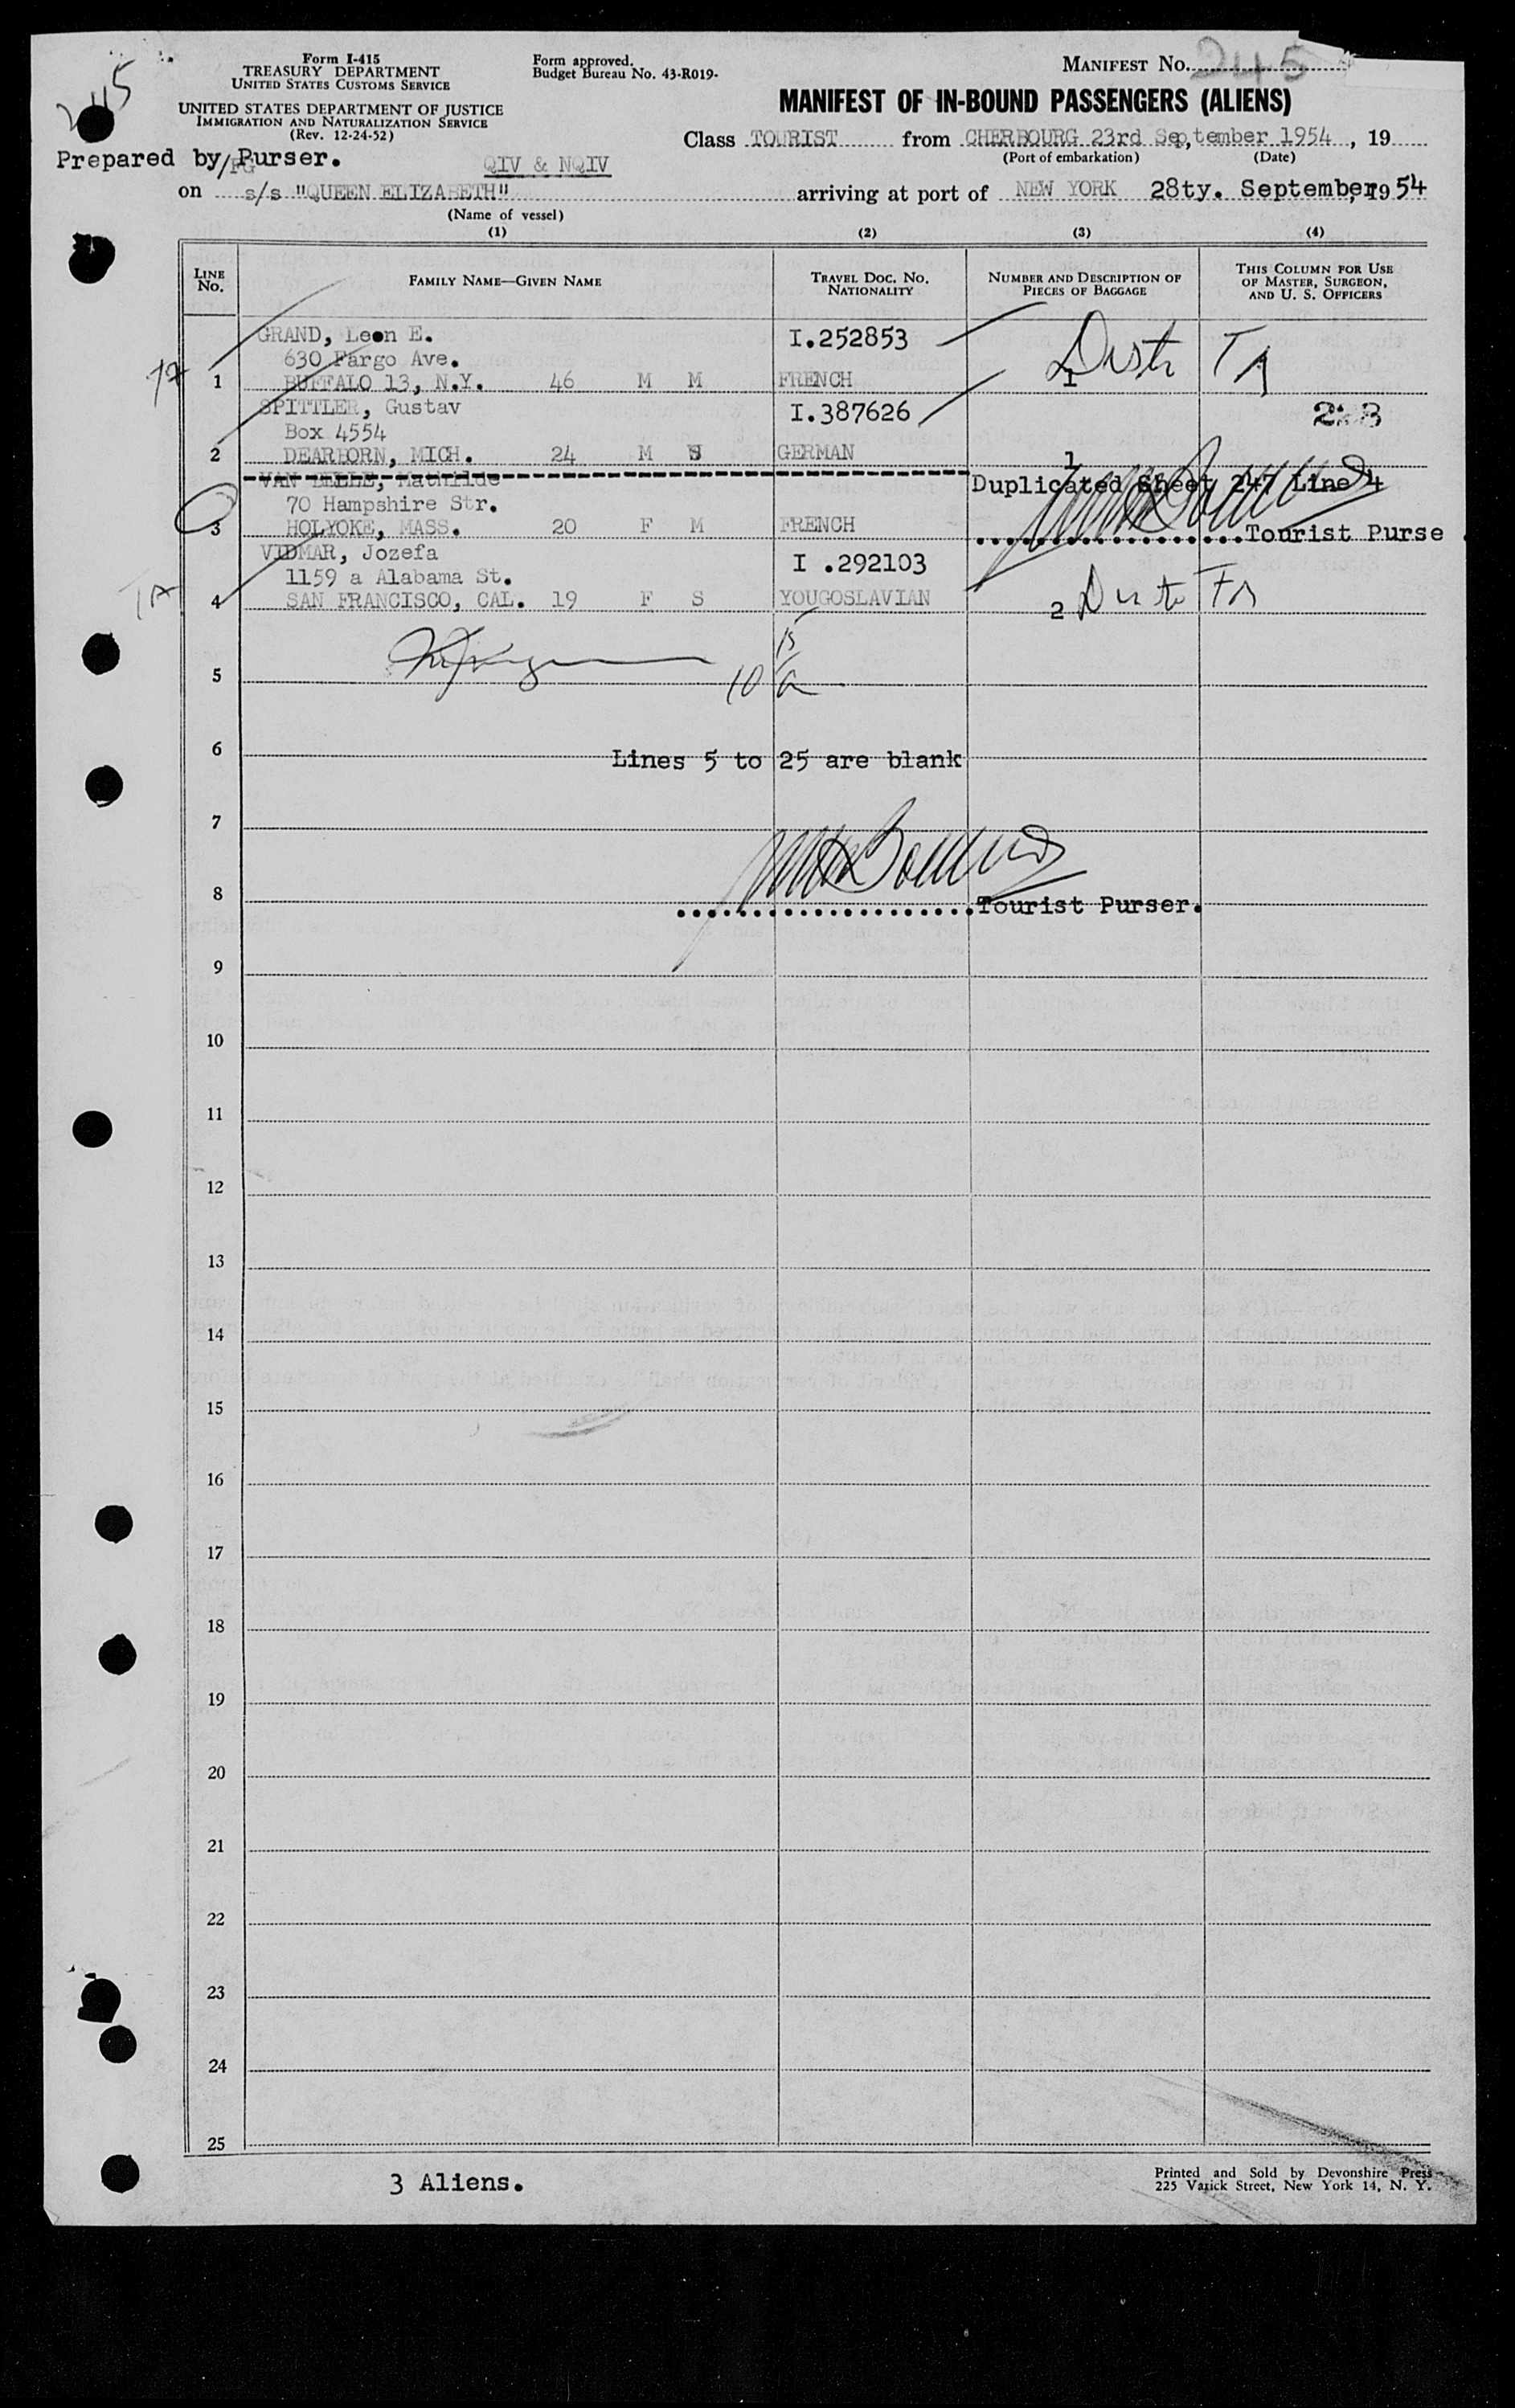 245
Form I-415
TREASURY DEPARTMENT
UNITED STATES CUSTOMS SERVICE
UNITED STATES DEPARTMENT OF JUSTICE
IMMIGRATION AND NATURALIZATION SERVICE
(Rev. 12-24-52)
Form approved.
Budget Bureau No. 43-R019-
MANIFEST No. 245
MANIFEST OF IN-BOUND PASSENGERS (ALIENS)
Class TOURIST from CHERBOURG 23rd Sep,tember 1954, 19
(Port of embarkation) (Date)
Prepared by/Purser.
PG
QIV & NQIV
on s/s "QUEEN ELIZABETH" arriving at port of NEW YORK 28ty. September, 1954
(Name of vessel)
(1) (2) (3) (4)
LINE No. FAMILY NAME—GIVEN NAME TRAVEL DOC. No. NATIONALITY NUMBER AND DESCRIPTION OF PIECES OF BAGGAGE THIS COLUMN FOR USE OF MASTER, SURGEON, AND U. S. OFFICERS
GRAND, Leon E. I.252853
630 Fargo Ave.
1 BUFFALO 13, N.Y. 46 M M FRENCH 1
SPITTLER, Gustav I.387626
Box 4554
2 DEARBORN, MICH. 24 M S GERMAN 1
VAN BELLE, Mathilde Duplicated Sheet 247 Line 4
70 Hampshire Str.
3 HOLYOKE, MASS. 20 F M FRENCH Tourist Purse
VIDMAR, Jozefa I .292103
1159 a Alabama St.
4 SAN FRANCISCO, CAL. 19 F S YOUGOSLAVIAN 2
5
6 Lines 5 to 25 are blank
7
8 Tourist Purser.
9
10
11
12
13
14
15
16
17
18
19
20
21
22
23
24
25
3 Aliens.
Printed and Sold by Devonshire Press
225 Varick Street, New York 14, N. Y.